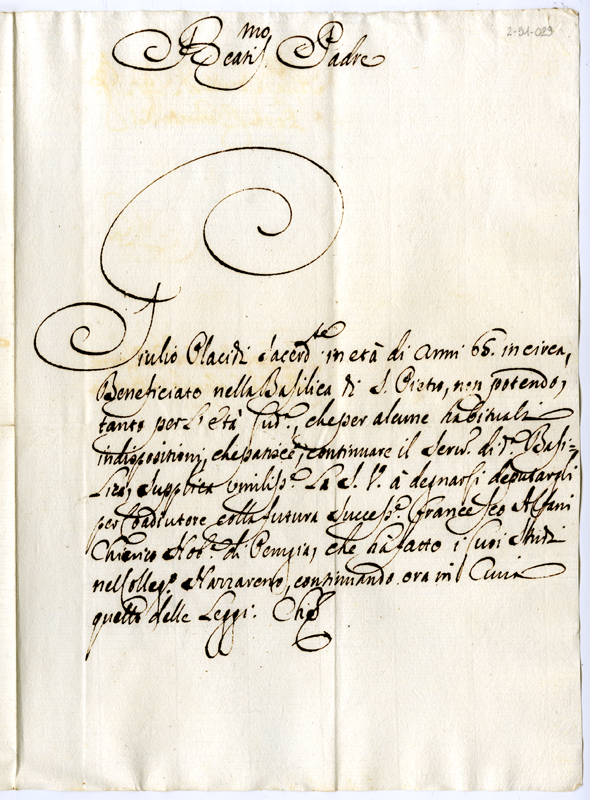 2-91-029
Beatis.mo Padre
Giulio Placidi Sacerd.te in età di Anni 65. in circa,
Beneficiato nella Basilica di S. Pietro, non potendo,
tanto per l'età sud.a, che per alcune habituali
indispositioni, che patisce, continuare il Serv.o di d.a Basi=
lica, Supplica Umiliss.e La S. V. à degnarsi deputargli
per Coadiutore colla futura Success.e Francesco Alfani
Chierico Nob.e di Perugia, che hà fatto i suoi Studi
nel Colleg.o Nazzareno, continuando ora in
quello delle Leggi. Che